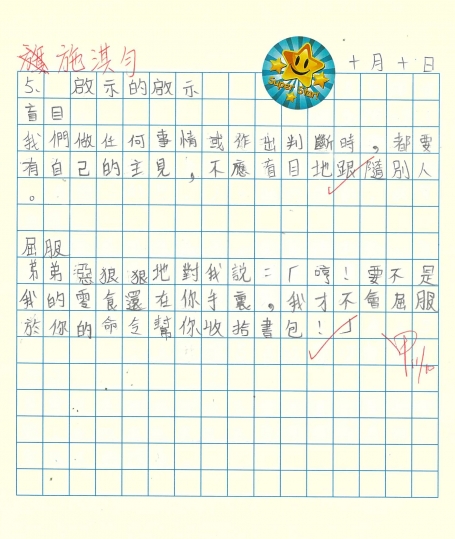 施淇勻
Super Star!
十月十日
5. 啟示的啟示
盲目
我們做任何事情或作出判斷時，都要
有自己的主見，不應盲目地跟隨別人
。
屈服
弟弟惡狠狠地對我說：「哼！要不是
我的零食還在你手裏，我才不會屈服
於你的命令幫你收拾書包！」
甲
11/10